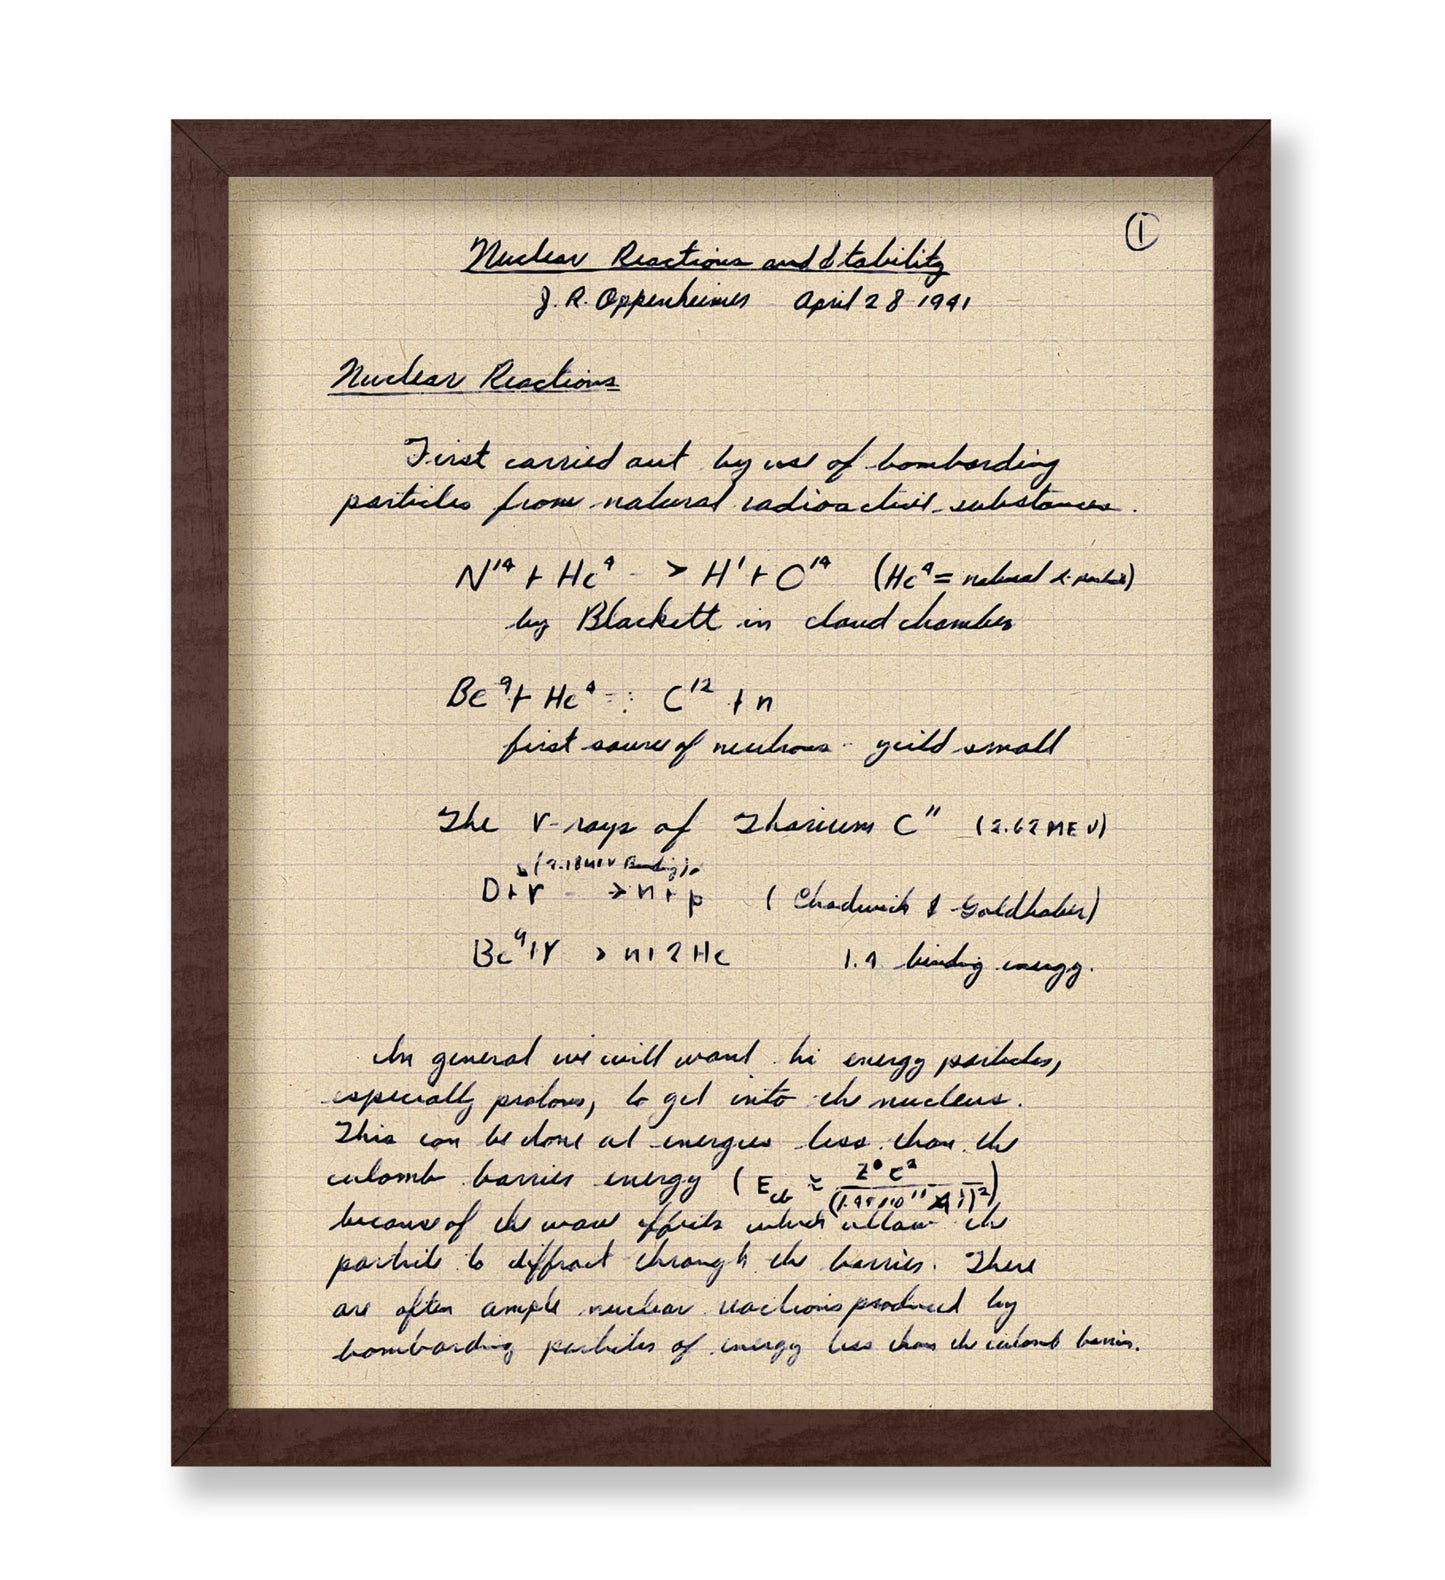 ①
Nuclear Reactions and Stability
J. R. Oppenheimer April 28 1941
Nuclear Reactions
First carried out by use of bombarding
particles from natural radioactive substances.
N¹⁴ + He⁴ -> H¹ + O¹⁴ (He⁴ = natural α-particle)
by Blackett in cloud chamber
Be⁹ + He⁴ C¹² + n
first source of neutrons - yeild small
The γ-rays of Thorium C" (2.62 MEV)
(2.18 MEV Binding)
D + γ -> n + p (Chadwick & Goldhaber)
Be⁹ + γ > n + 2 He 1.4 binding energy.
In general we will want hi energy particles,
especially protons, to get into the nucleus.
This can be done at energies less than the
culomb barrier energy (E ≈ Z e²
because of the wave effects which allow the
particle to diffract through the barrier. There
are often ample nuclear reactions produced by
bombarding particles of energy less than the culomb barrier.